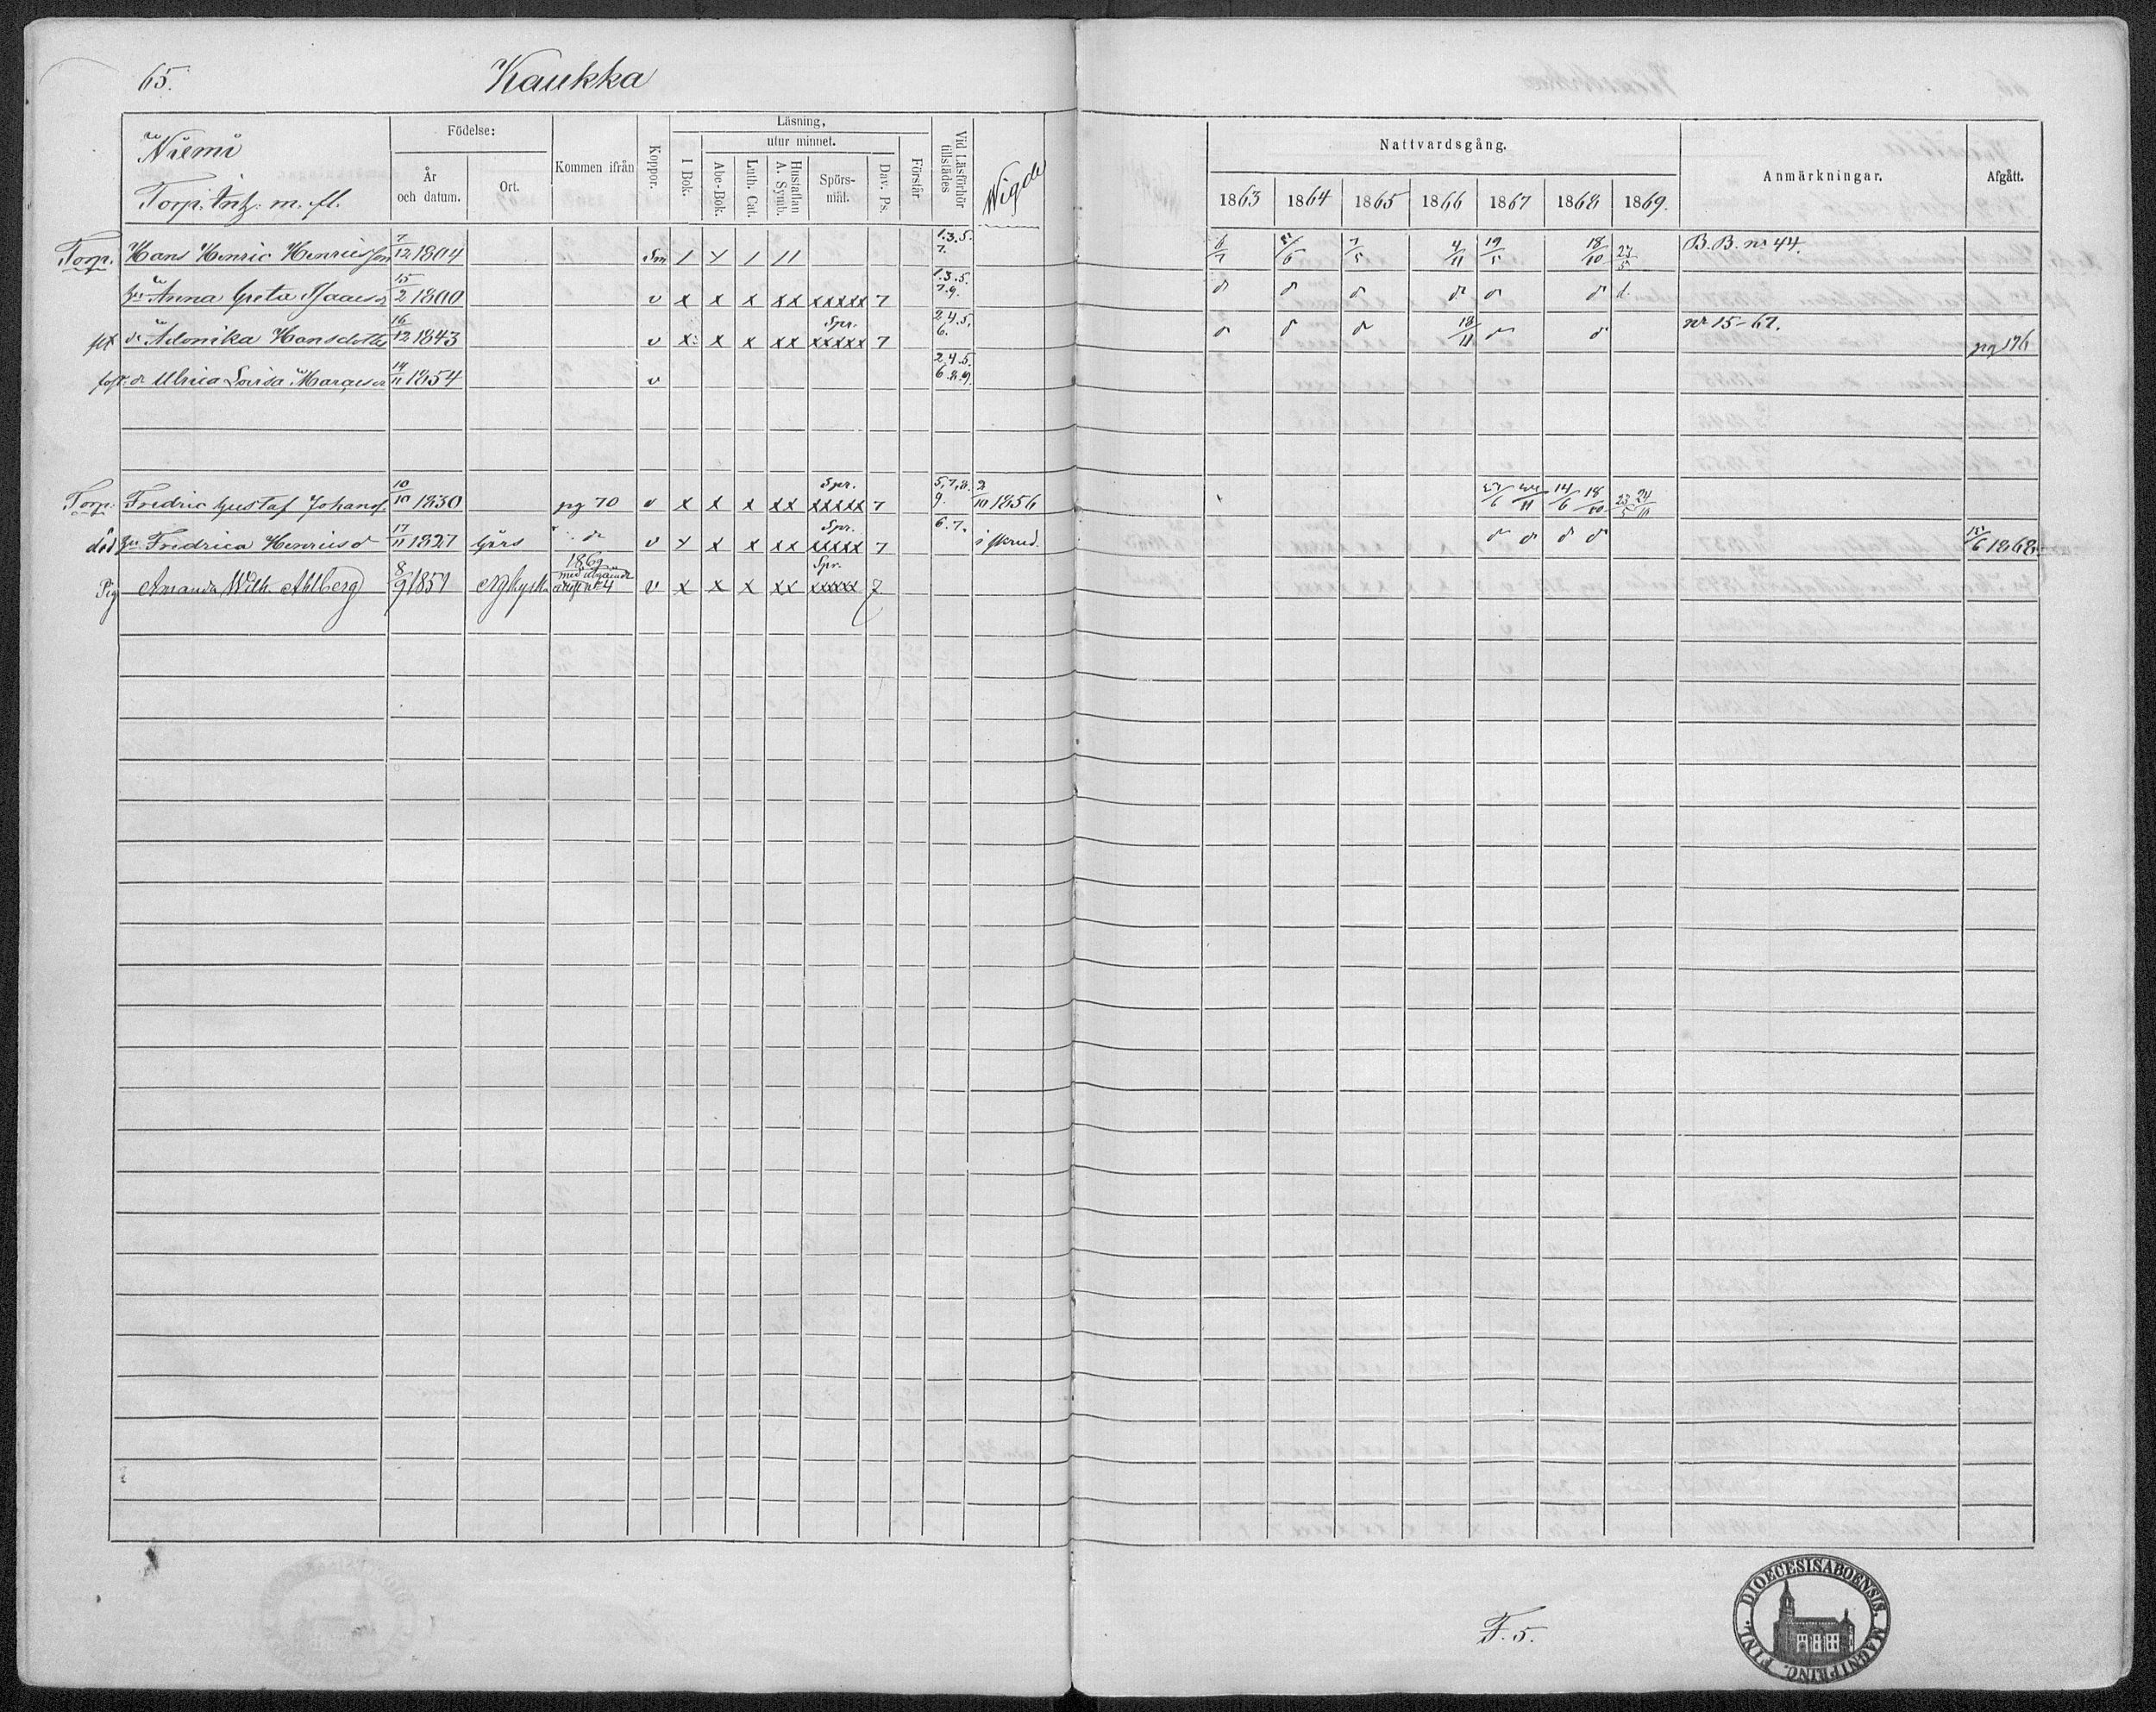 65. Kaukka
Niemi
Torp. Intz. m. fl.
Födelse:
År och datum.
Ort.
Kommen ifrån
Koppor.
Läsning,
utur minnet.
I Bok.
Abc-Bok.
Luth. Cat.
Hustaflan A. Symb.
Spörsmål.
Dav. Ps.
Förstår
Vid Läsförhör tillstädes
Wigde
Nattvardsgång.
1863 1864 1865 1866 1867 1868 1869.
Anmärkningar.
Afgått.
Torp. Hans Henric Henricsson 7/12 1804 1.3.5. 7. 6/7 7/5 4/11 19/5 18/10 23/5 B.B. nr 44.
Anna Greta Isaacsd 15/2 1800 v x x x xx xxxxx 7 1.3.5. 7.9.
Adonika Hansdotter 16/12 1843 v x x x xx Spr. xxxxx 7 2.4.5. 6. 18/11 nr 15-67. pg 176
Ulrica Lovisa 14/11 1854 v 2.4.5. 6.8.9.
Torp. Fredric Gustaf Johansf. 10/10 1830 pg 70 v x x x xx Spr. xxxxx 7 5,7,8. 9. 2/10 1856 14/6 18/10 23/5 24/10
död Fredrica Henricsd 17/11 1827 v x x x xx Spr. xxxxx 7 6.7. 15/6 1868
Pig Amanda Wilh. Ahlberg 8/9 1851 Nykyrk 1869 attest nr 4 v x x x xx Spr. xxxxx 7.
F. 5.
FINL. DIOECESIS ABOENSIS. MAGNI PRINC.